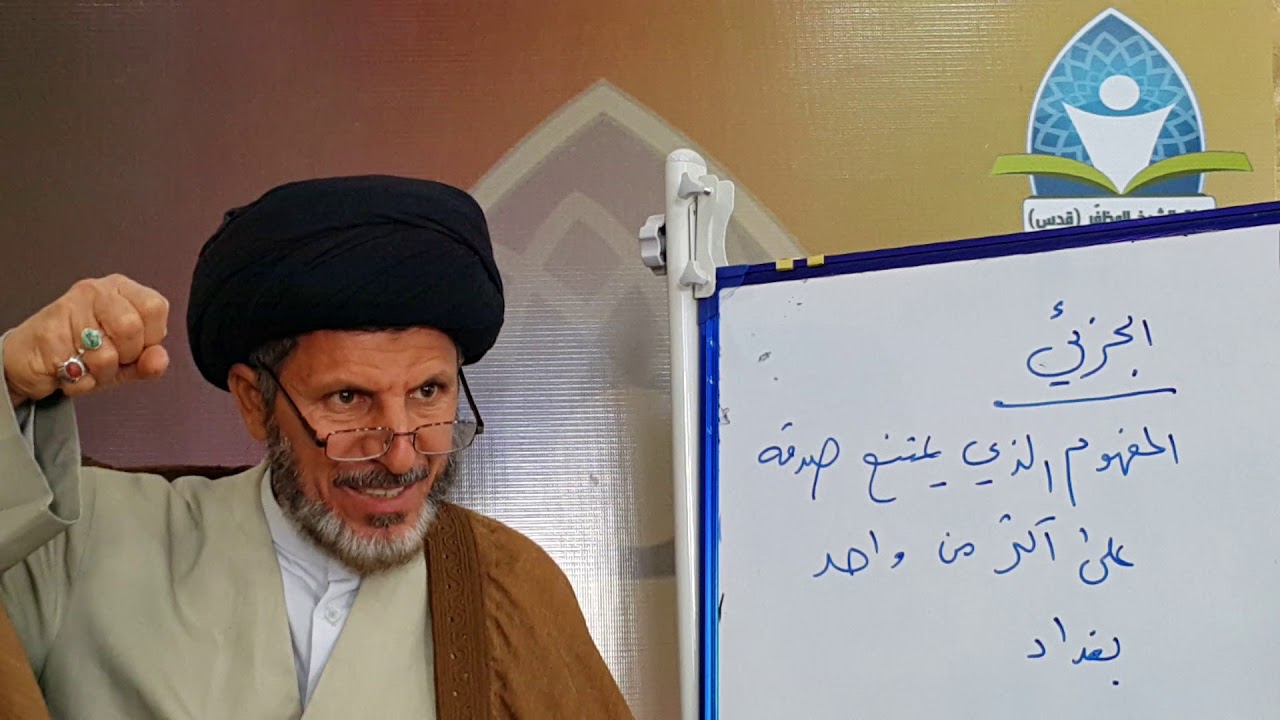 الشيخ المظفر (قدس)
الجزئي
المفهوم الذي يمتنع صدقه
على أكثر من واحد
بغداد